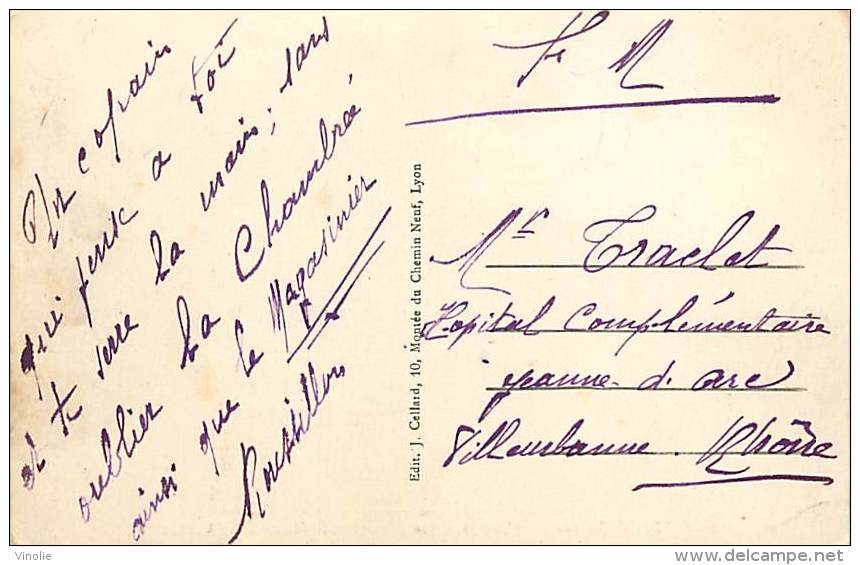 Un copain
qui pense a toi
et te serre la main, sans
oublier la Chambrée
ainsi que le Magasinier
Roussillon
Edit. J. Cellard, 10, Montée du Chemin Neuf, Lyon
F M
Mr Traclet
Hopital Complémentaire
Jeanne d'Arc
Villeurbanne. Rhône
Vinolie
www.delcampe.net